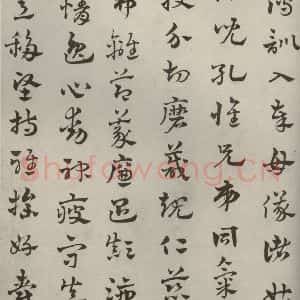 傅訓入奉母儀諸姑
兒孔懷兄弟同氣
投分切磨箴規仁慈
弗離節義廉退顛沛
情逸心動神疲守真
意移堅持雅操好爵
Shufawang.CN